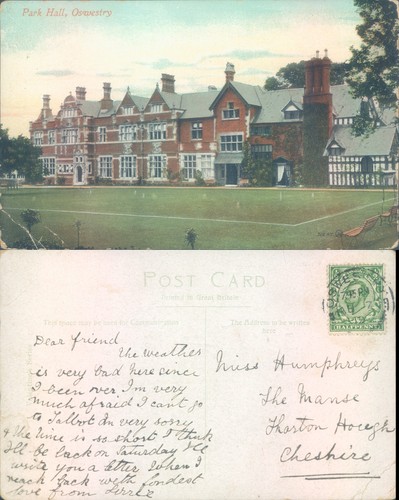 Park Hall, Oswestry
POST CARD
Printed in Great Britain
This space may be used for Communication
The Address to be written here
HALFPENNY
Dear friend
The weather
is very bad here since
I been over Im very
much afraid I can't go
to Talbot Im very sorry
& the time is so short I think
I'll be back on Saturday I'll
write you a letter when I
reach back with fondest
love from Lizzie
Miss Humphreys
The Manse
Tharton Hough
Cheshire